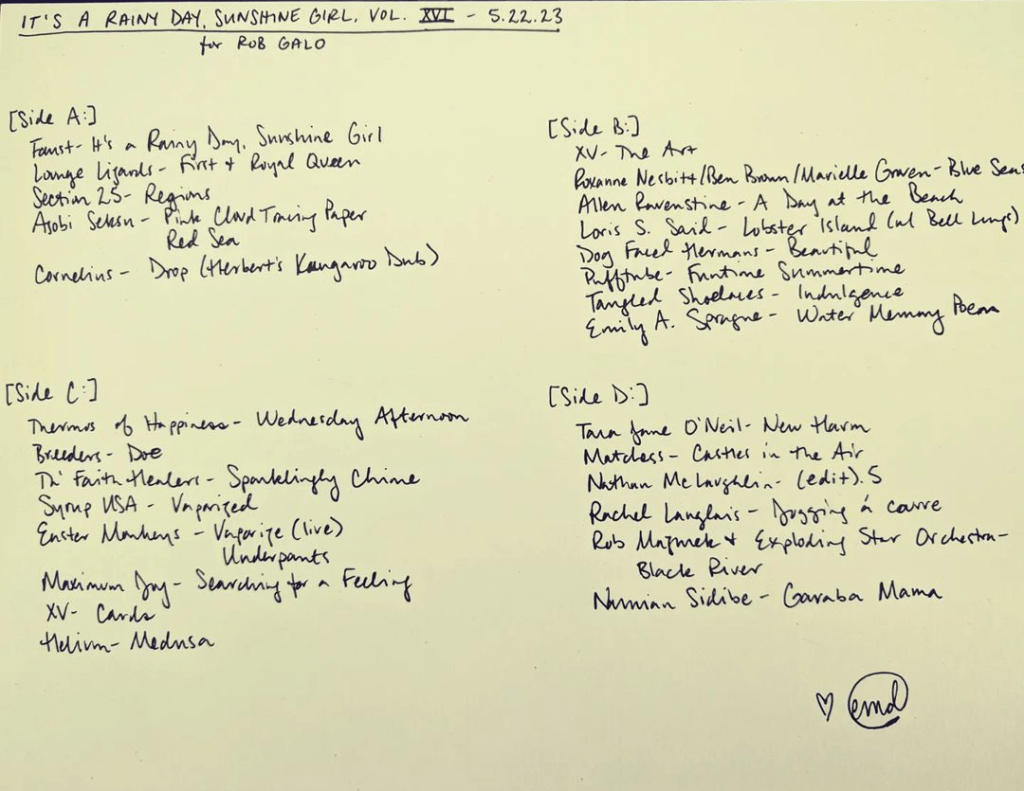 IT'S A RAINY DAY, SUNSHINE GIRL, VOL. XVI - 5.22.23
for ROB GALO
[Side A:]
Faust- It's a Rainy Day, Sunshine Girl
Lounge Lizards - First + Royal Queen
Section 25- Regions
Asobi Seksu - Pink Cloud Tracing Paper
Red Sea
Cornelius - Drop (Herbert's Kangaroo Dub)
[Side B:]
XV- The Art
Roxanne Nesbitt/Ben Brown/Marielle Groven- Blue Seas
Allen Ravenstine - A Day at the Beach
Loris S. Sarid - Lobster Island (w/ Bell Lungs)
Dog Faced Hermans - Beautiful
Pufftube - Funtime Summertime
Tangled Shoelaces - Indulgence
Emily A. Sprague - Water Memory Poem
[Side C:]
Thermos of Happiness- Wednesday Afternoon
Breeders- Doe
Th' Faith Healers- Sparklingly Chime
Syrup USA - Vaporized
Easter Monkeys - Vaporize (live)
Underpants
Maximum Joy- Searching for a Feeling
XV- Cards
Helium- Medusa
[Side D:]
Tara Jane O'Neil- New Harm
Matchess- Castles in the Air
Nathan McLaughlin- (edit).5
Rachel Langlais - Jogging á courre
Rob Mazurek + Exploding Star Orchestra-
Black River
Numian Sidibe - Garaba Mama
♡ emd